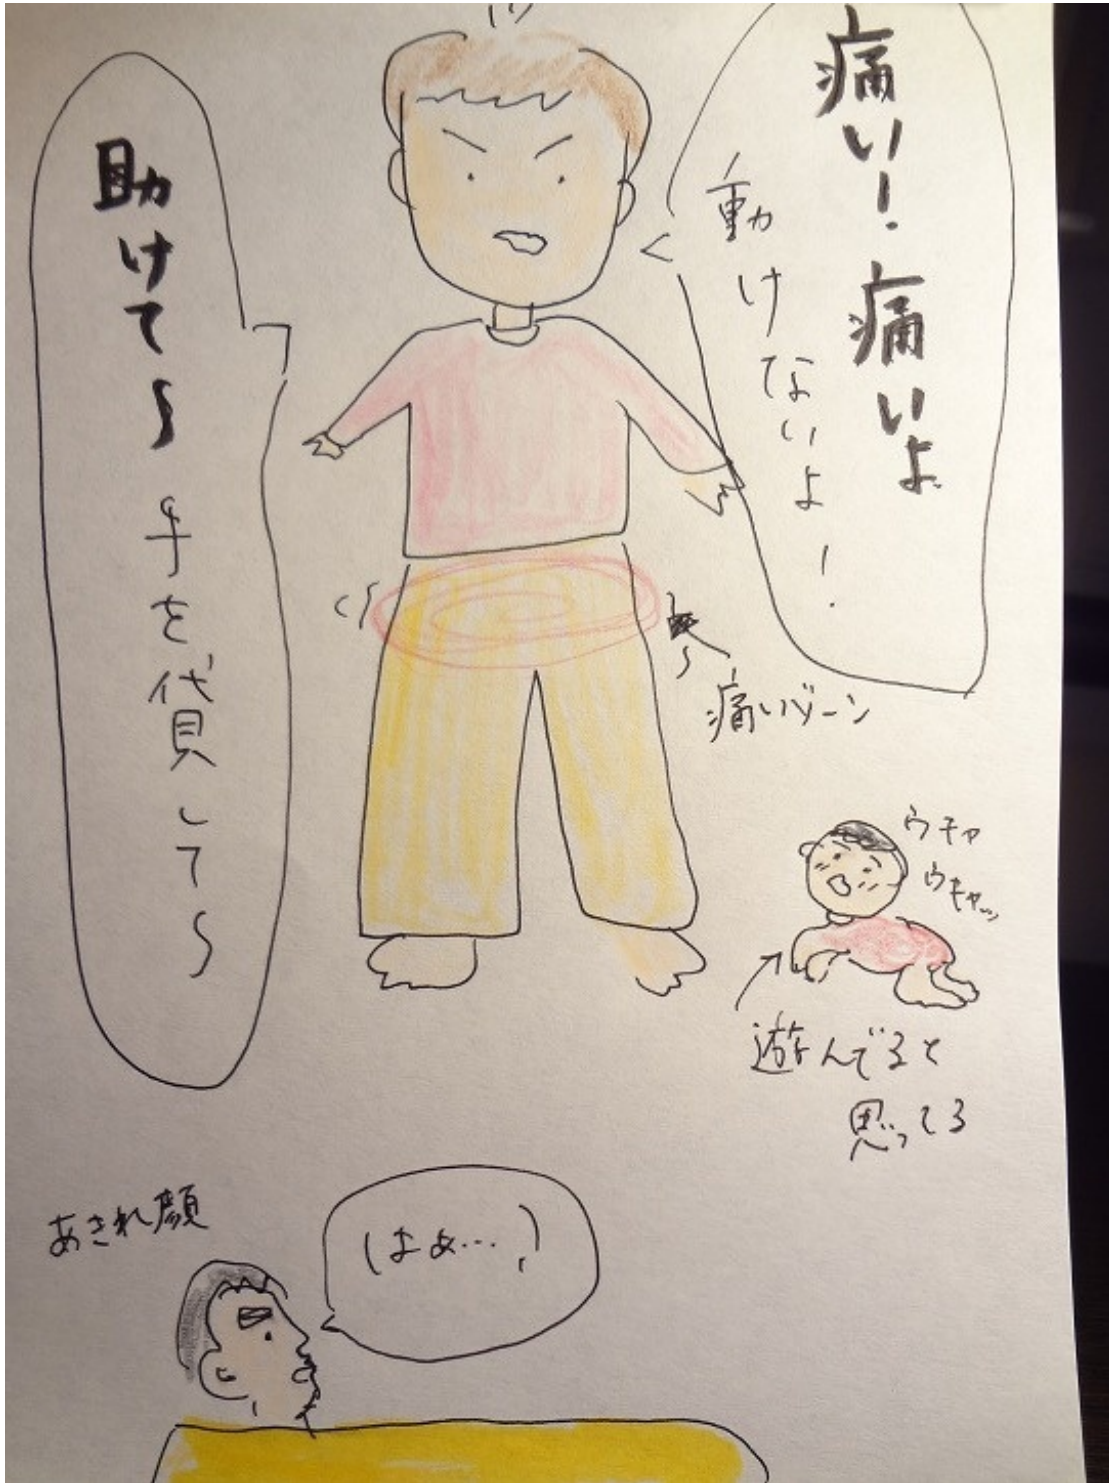 痛い!痛いよ
動けないよ!
助けて〜
手を貸して〜
痛いゾーン
ウキャ
ウキャッ
遊んでると
思ってる
あきれ顔
はぁ…?